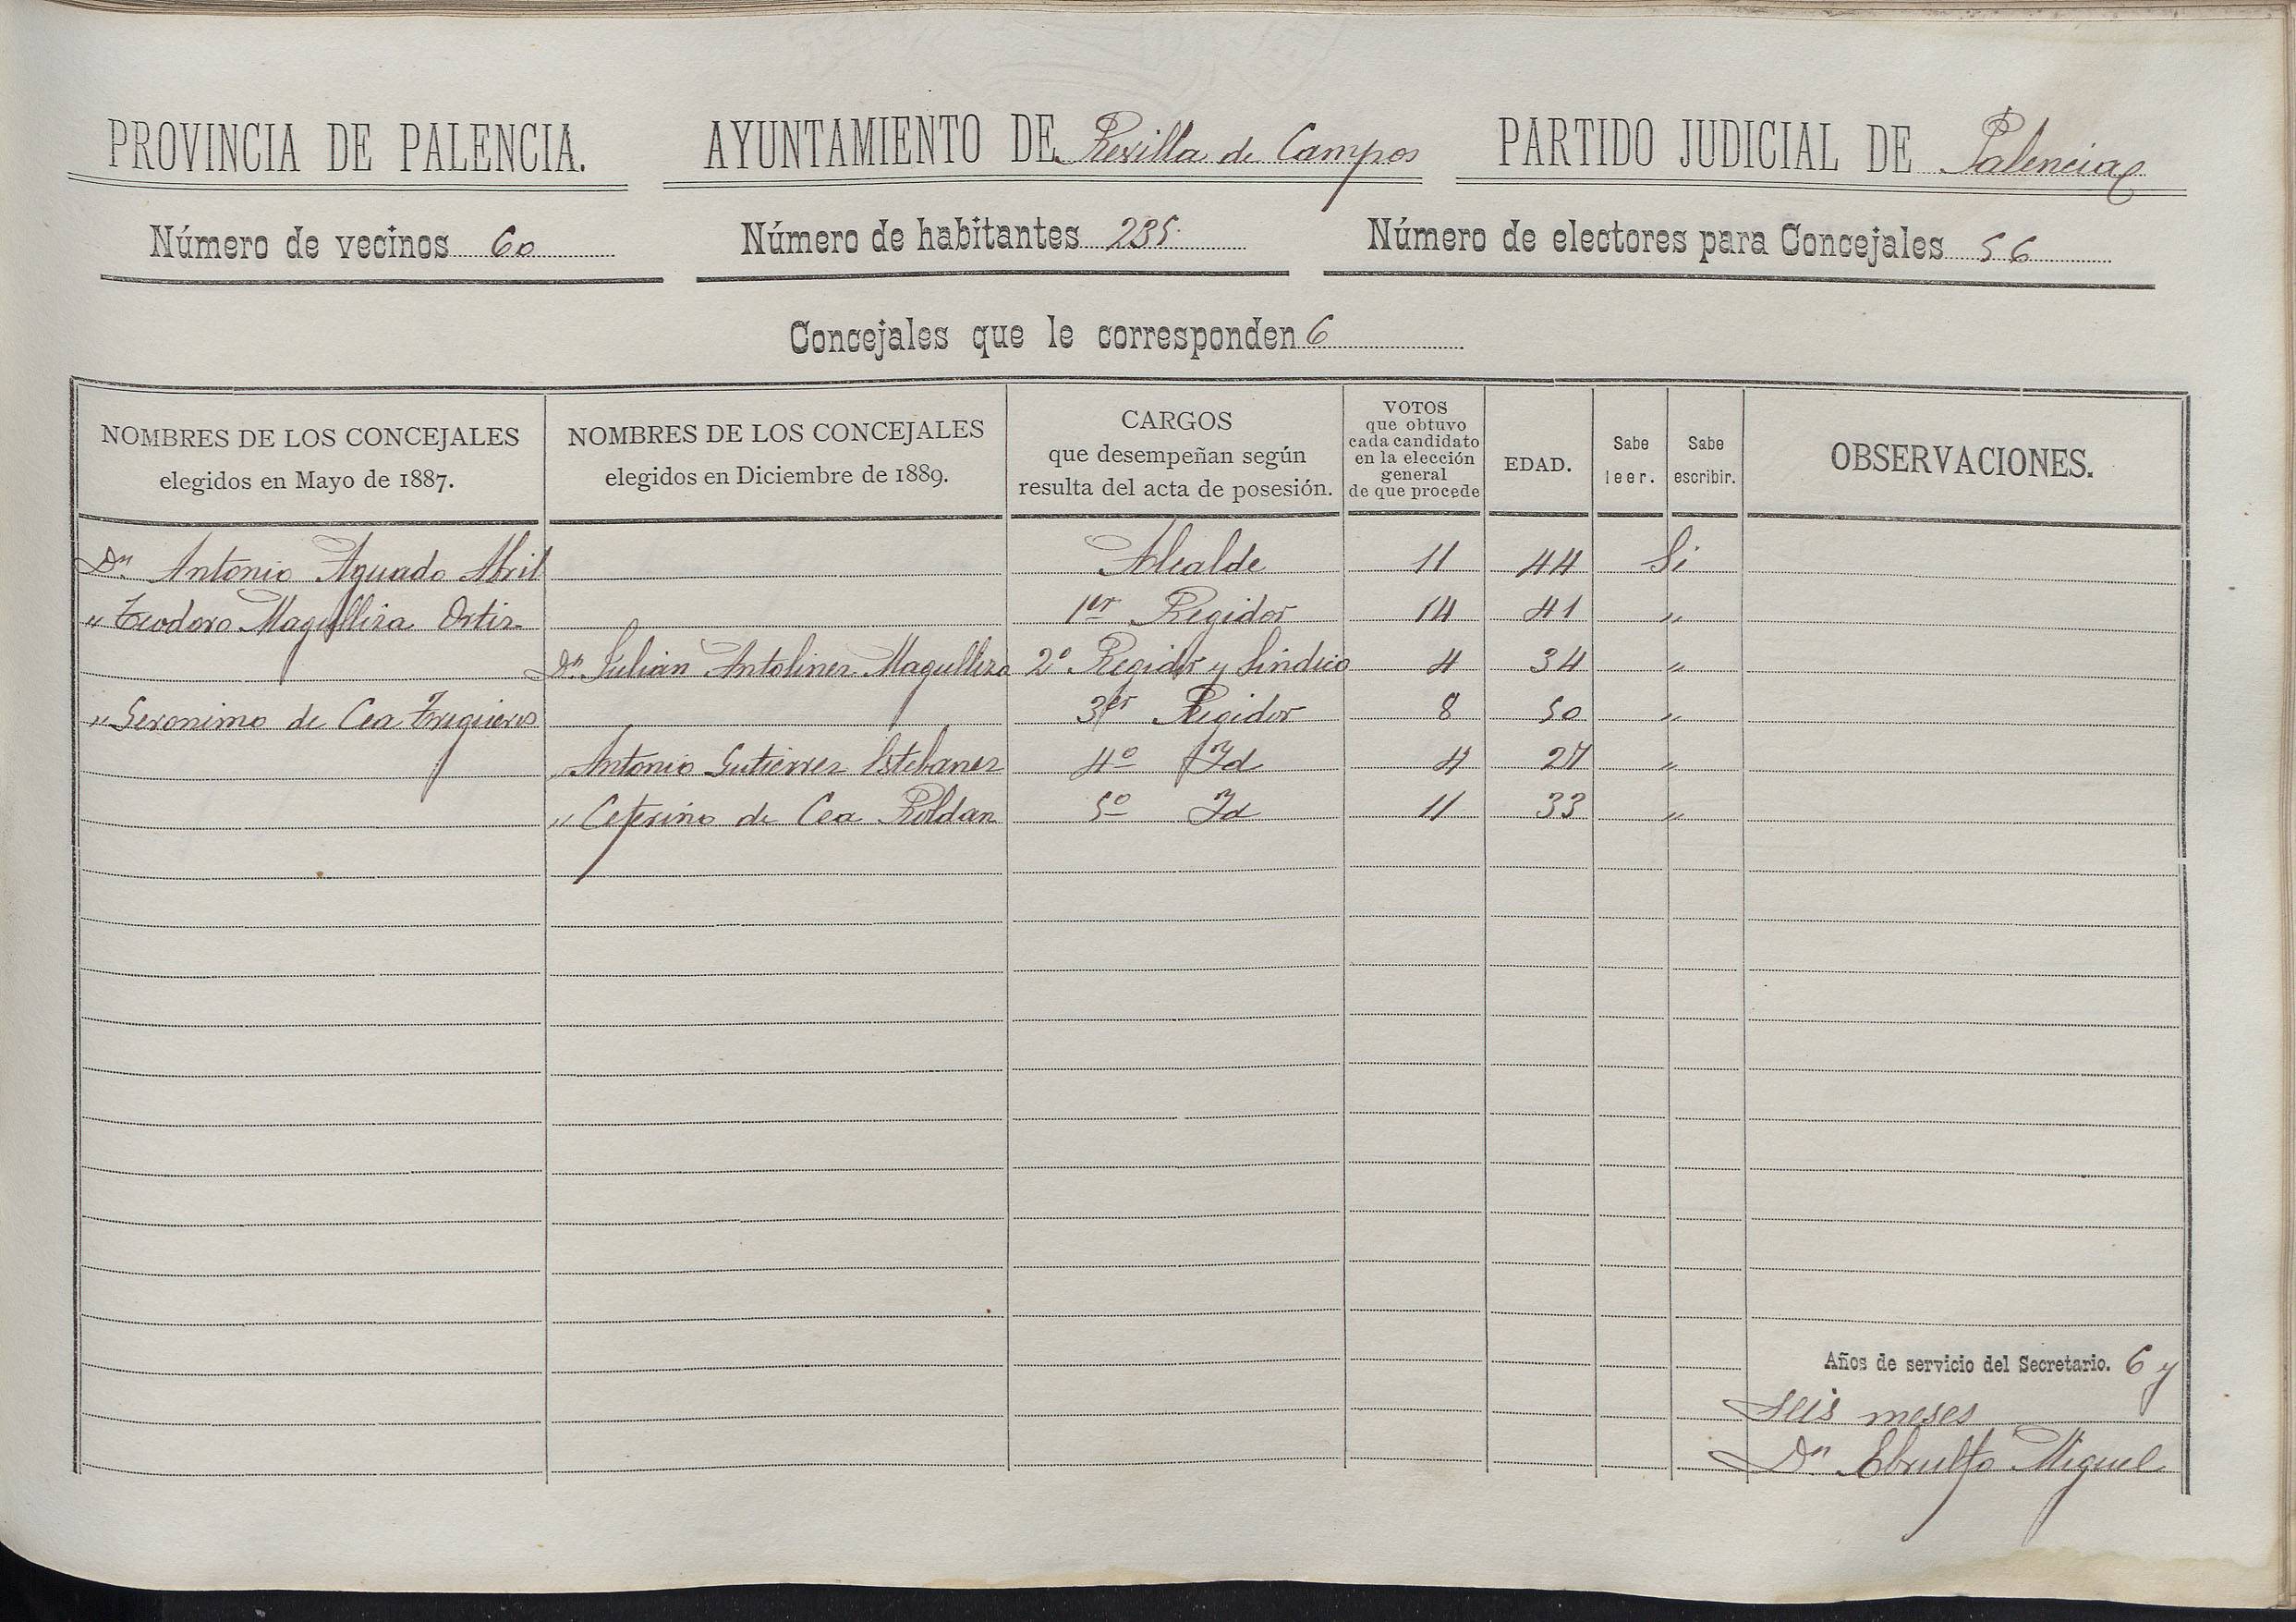 PROVINCIA DE PALENCIA. AYUNTAMIENTO DE Revilla de Campos PARTIDO JUDICIAL DE Palencia
Número de vecinos 60 Número de habitantes 235. Número de electores para Concejales 56
Concejales que le corresponden 6
NOMBRES DE LOS CONCEJALES elegidos en Mayo de 1887. NOMBRES DE LOS CONCEJALES elegidos en Diciembre de 1889. CARGOS que desempeñan según resulta del acta de posesión. VOTOS que obtuvo cada candidato en la elección general de que procede EDAD. Sabe leer. Sabe escribir. OBSERVACIONES.
Dn. Antonio Aguado Abril Alcalde 11 44 Si
" Teodoro Magulliza Ortiz 1er Regidor 14 41 "
Dn. Julian Antolinez Magulliza 2º Regidor y Sindico 4 34 "
" Geronimo de Cea 3er Regidor 8 50 "
" Antonio Gutierrez Estebanez 4º Id 4 27 "
" Ceferino de Cea Roldan 5º Id 11 33 "
Años de servicio del Secretario. 6 y
seis meses
Dn. Miguel